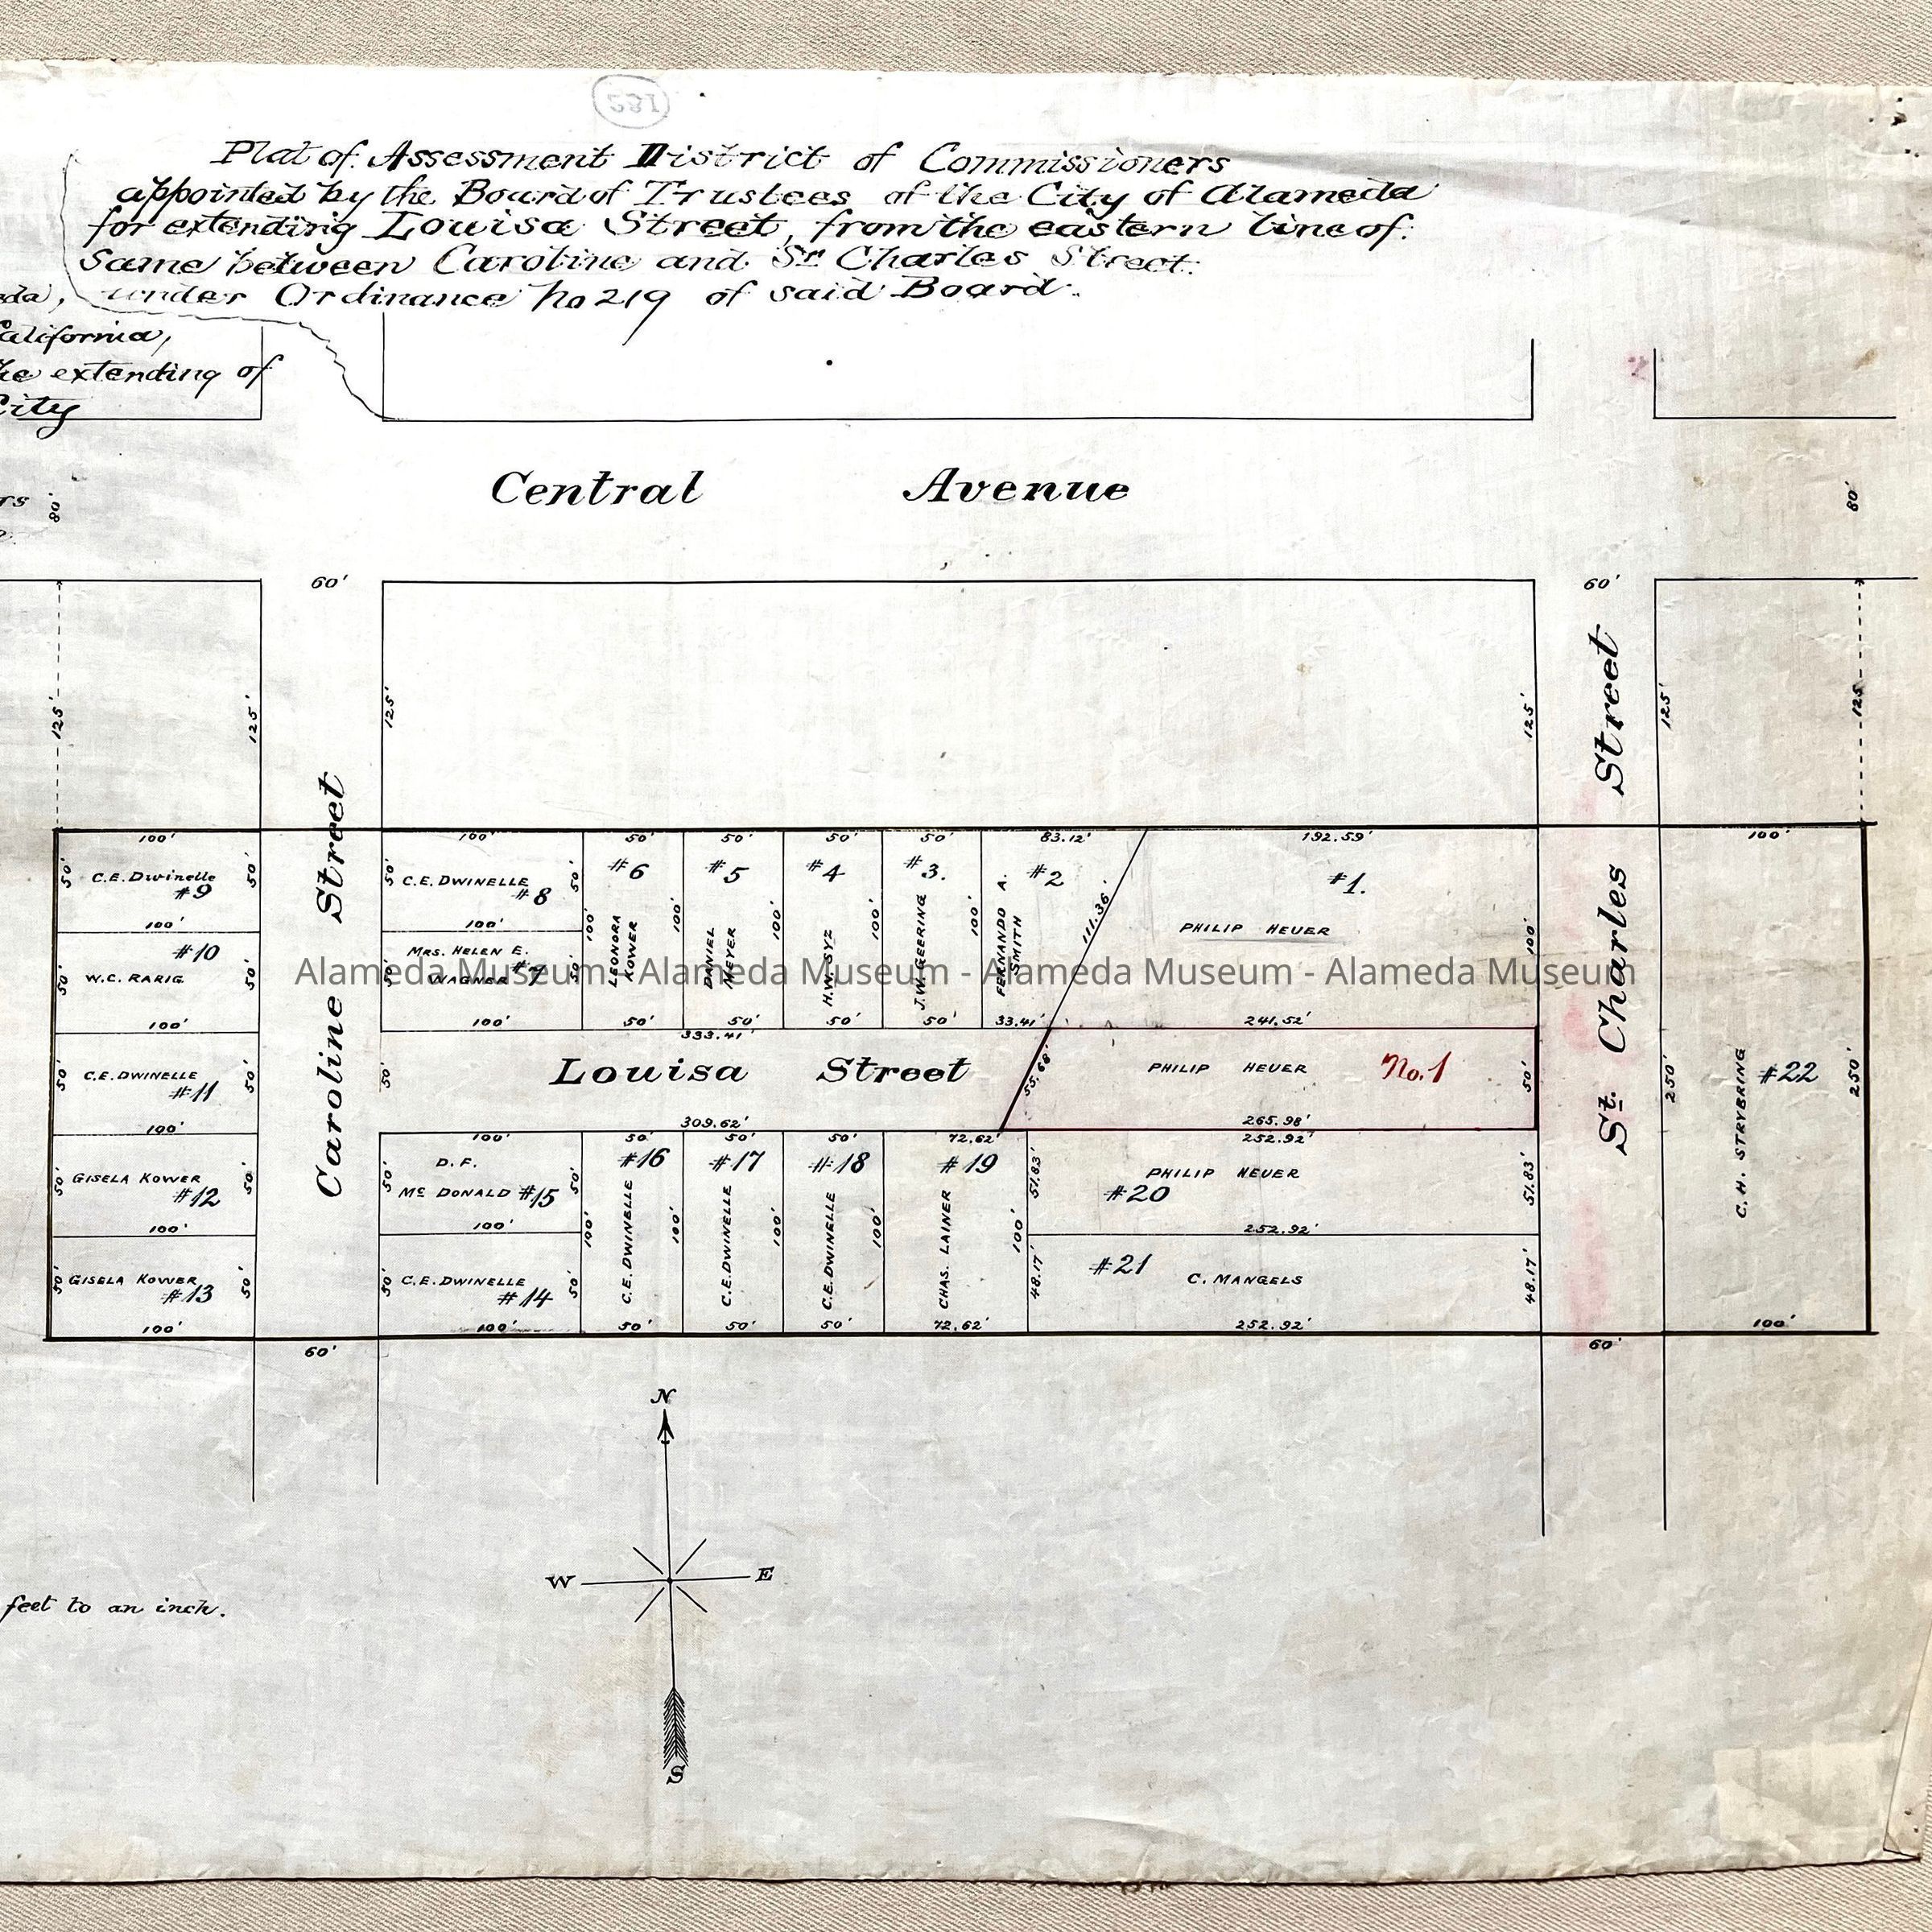 Plat of Assessment District of Commissioners
appointed by the Board of Trustees of the City of Alameda
for extending Louisa Street, from the eastern line of
same between Caroline and St. Charles Street.
under Ordinance No 219 of said Board.
California,
the extending of
City
Central Avenue
80'
80'
60'
60'
125'
125'
125'
125'
125'
125
Caroline Street
St. Charles Street
100'
100'
50'
50'
50'
50'
83.12'
192.59'
100'
50'
C.E. Dwinelle
#9
50'
100'
50'
C.E. DWINELLE
#8
50'
100'
#6
LEONORA
KOWER
100'
100'
50'
#5
DANIEL
MEYER
100'
50'
#4
H.W. SYZ
100'
50'
#3.
J.W. GEERING
100'
50'
#2
FERNANDO A.
SMITH
111.36'
33.41'
#1.
PHILIP HEUER
100'
241.52'
#10
W.C. RARIG
50'
50'
100'
MRS. HELEN E.
WAGNER #7
50'
50'
100'
Alameda Museum - Alameda Museum - Alameda Museum - Alameda Museum
333.41'
50'
Louisa Street
55.68'
309.62'
PHILIP HEUER No.1
50'
265.98'
50'
C.E. DWINELLE
#11
50'
100'
50'
GISELA KOWER
#12
50'
100'
50'
GISELA KOWER
#13
50'
100'
100'
50'
D.F.
Mc DONALD #15
50'
100'
50'
C.E. DWINELLE
#14
50'
100'
50'
#16
C.E. DWINELLE
100'
100'
50'
50'
#17
C.E. DWINELLE
100'
50'
50'
#18
C.E. DWINELLE
100'
50'
72.62'
#19
CHAS. LAINER
100'
72.62'
252.92'
51.83'
PHILIP HEUER
#20
51.83'
252.92'
48.17'
#21
C. MANGELS
48.17'
252.92'
100'
250'
C. H. STRYBRING
#22
250'
100'
60'
60'
N
W E
S
feet to an inch.